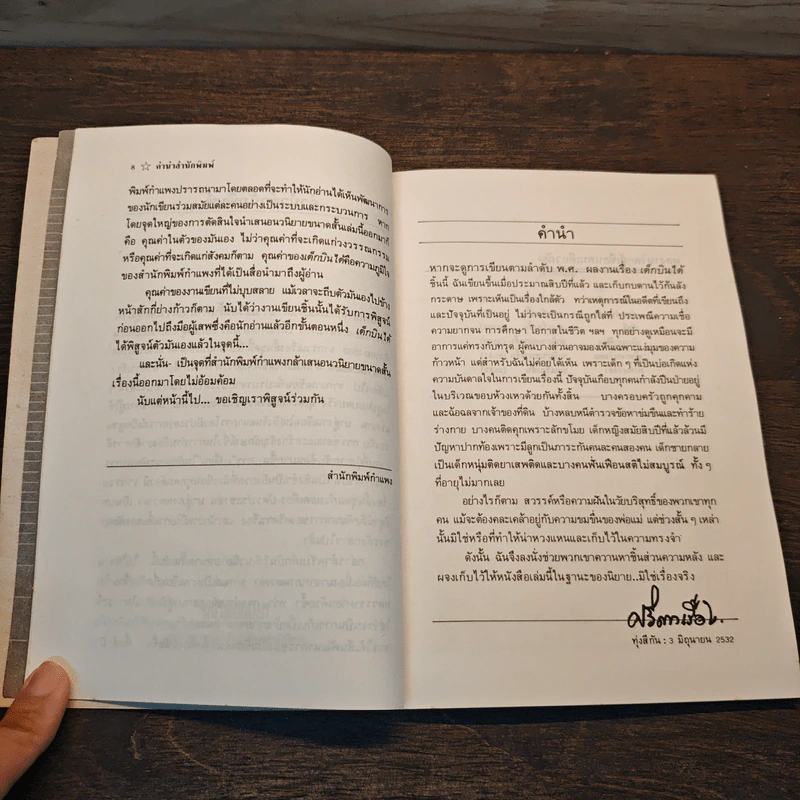 8 ☆ คำนำสำนักพิมพ์
พิมพ์กำแพงปรารถนามาโดยตลอดที่จะทำให้นักอ่านได้เห็นพัฒนาการ
ของนักเขียนร่วมสมัยแต่ละคนอย่างเป็นระบบและกระบวนการ หาก
โดยจุดใหญ่ของการตัดสินใจนำเสนอนวนิยายขนาดสั้นเล่มนี้ออกมาก็
คือ คุณค่าในตัวของมันเอง ไม่ว่าคุณค่าที่จะเกิดแก่วงวรรณกรรม
หรือคุณค่าที่จะเกิดแก่สังคมก็ตาม คุณค่าของเด็กบินได้คือความภูมิใจ
ของสำนักพิมพ์กำแพงที่ได้เป็นสื่อนำมาถึงผู้อ่าน
คุณค่าของงานเขียนที่ไม่บุบสลาย แม้เวลาจะถีบตัวมันเองไปข้าง
หน้าสักกี่ย่างก้าวก็ตาม นับได้ว่างานเขียนชิ้นนั้นได้รับการพิสูจน์
ก่อนออกไปถึงมือผู้เสพซึ่งคือนักอ่านแล้วอีกขั้นตอนหนึ่ง เด็กบินได้
ได้พิสูจน์ตัวมันเองแล้วในจุดนี้...
และนั่น- เป็นจุดที่สำนักพิมพ์กำแพงกล้าเสนอนวนิยายขนาดสั้น
เรื่องนี้ออกมาโดยไม่อ้อมค้อม
นับแต่หน้านี้ไป... ขอเชิญเราพิสูจน์ร่วมกัน
สำนักพิมพ์กำแพง
คำนำ
หากจะดูการเขียนตามลำดับ พ.ศ. ผลงานเรื่อง เด็กบินได้
ชิ้นนี้ ฉันเขียนขึ้นเมื่อประมาณสิบปีที่แล้ว และเก็บกบดานไว้ก้นลัง
กระดาษ เพราะเห็นเป็นเรื่องใกล้ตัว ทว่าเหตุการณ์ในอดีตที่เขียนถึง
และปัจจุบันที่เป็นอยู่ ไม่ว่าจะเป็นกรณีถูกไล่ที่ ประเพณีความเชื่อ
ความยากจน การศึกษา โอกาสในชีวิต ฯลฯ ทุกอย่างดูเหมือนจะมี
อาการแค่ทรงกับทรุด ผู้คนบางส่วนอาจมองเห็นเฉพาะแง่มุมของความ
ก้าวหน้า แต่สำหรับฉันไม่ค่อยได้เห็น เพราะเด็ก ๆ ที่เป็นบ่อเกิดแห่ง
ความบันดาลใจในการเขียนเรื่องนี้ ปัจจุบันเกือบทุกคนกำลังป่ายป่าย
ในบริเวณขอบห้วงเหวด้วยกันทั้งสิ้น บางครอบครัวถูกคุกคาม
และฉ้อฉลจากเจ้าของที่ดิน บ้างหลบหนีตำรวจข้อหาข่มขืนและทำร้าย
ร่างกาย บางคนติดคุกเพราะลักขโมย เด็กหญิงสมัยสิบปีที่แล้วล้วนมี
ปัญหาปากท้องเพราะมีลูกเป็นภาระกันคนละคนสองคน เด็กชายกลาย
เป็นเด็กหนุ่มติดยาเสพติดและบางคนฟั่นเฟือนสติไม่สมบูรณ์ ทั้ง ๆ
ที่อายุไม่มากเลย
อย่างไรก็ตาม สวรรค์หรือความฝันในวัยบริสุทธิ์ของพวกเขาทุก
คน แม้จะต้องคละเคล้าอยู่กับความขมขื่นของพ่อแม่ แต่ช่วงสั้น ๆ เหล่า
นั้นมิใช่หรือที่ทำให้น่าหวงแหนและเก็บไว้ในความทรงจำ
ดังนั้น ฉันจึงลงนั่งช่วยพวกเขาควานหาชิ้นส่วนความหลัง และ
ผจงเก็บไว้ให้หนังสือเล่มนี้ในฐานะของนิยาย..มิใช่เรื่องจริง
ศรีดาวเรือง
ทุ่งสีกัน : 3 มิถุนายน 2532